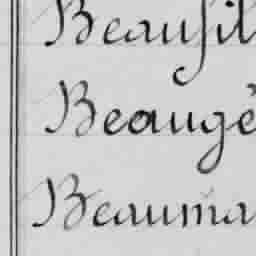 Beaufil
Beaugé
Beauma